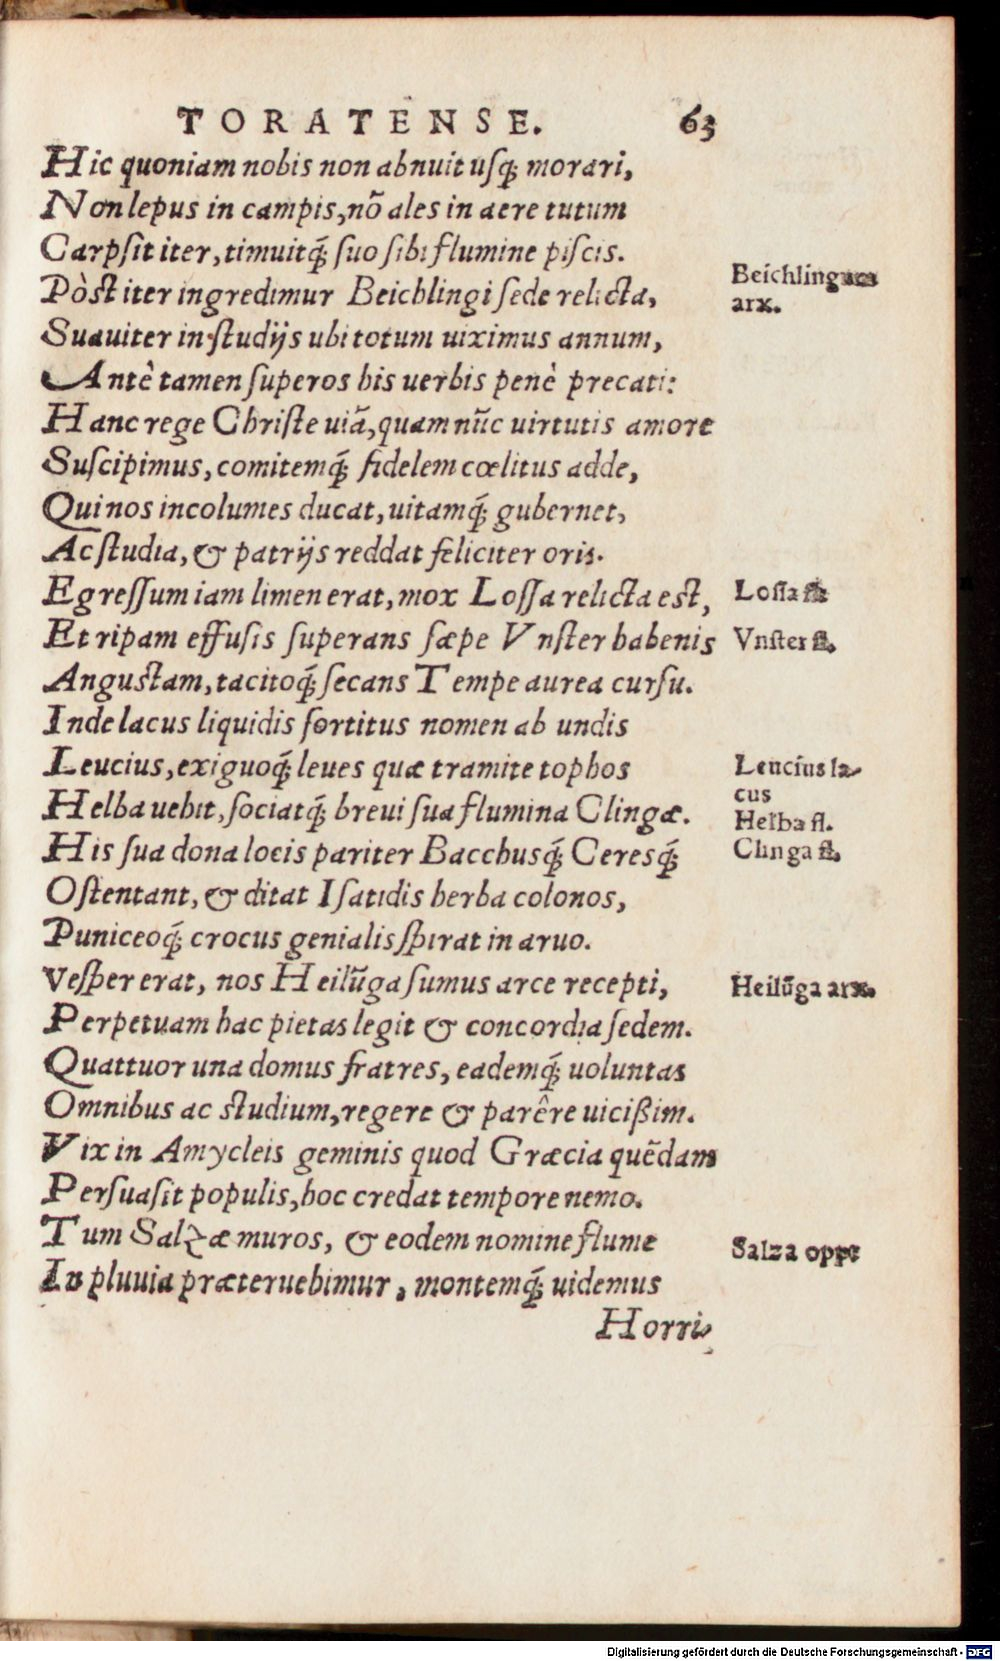 TORATENSE. 63
Hic quoniam nobis non abnuit usq; morari,
Non lepus in campis, nõ ales in aere tutum
Carpsit iter, timuitq́; suo sibi flumine piscis.
Pòst iter ingredimur Beichlingi sede relicta,
Beichlingum
arx.
Suauiter in studijs ubi totum uiximus annum,
Antè tamen superos his uerbis penè precati:
Hanc rege Christe uiã, quam nũc uirtutis amore
Suscipimus, comitemq́; fidelem cœlitus adde,
Qui nos incolumes ducat, uitamq́; gubernet,
Ac studia, & patrijs reddat feliciter oris.
Egressum iam limen erat, mox Lossa relicta est,
Lossa fl.
Et ripam effusis superans sæpe Vnster habenis
Vnster fl.
Angustam, tacitoq́; secans Tempe aurea cursu.
Inde lacus liquidis sortitus nomen ab undis
Leucius, exiguoq́; leues quæ tramite tophos
Leucius la-
cus
Helba uehit, sociatq́; breui sua flumina Clingæ.
Helba fl.
His sua dona locis pariter Bacchusq́; Ceresq́;
Clinga fl.
Ostentant, & ditat Isatidis herba colonos,
Puniceoq́; crocus genialis spirat in aruo.
Vesper erat, nos Heilũga sumus arce recepti,
Heilũga arx.
Perpetuam hac pietas legit & concordia sedem.
Quattuor una domus fratres, eademq́; uoluntas
Omnibus ac studium, regere & parêre uicißim.
Vix in Amycleis geminis quod Græcia quẽdam
Persuasit populis, hoc credat tempore nemo.
Tum Salzæ muros, & eodem nomine flume
Salza opp:
In pluuia præteruehimur, montemq́; uidemus
Horri-
Digitalisierung gefördert durch die Deutsche Forschungsgemeinschaft - DFG